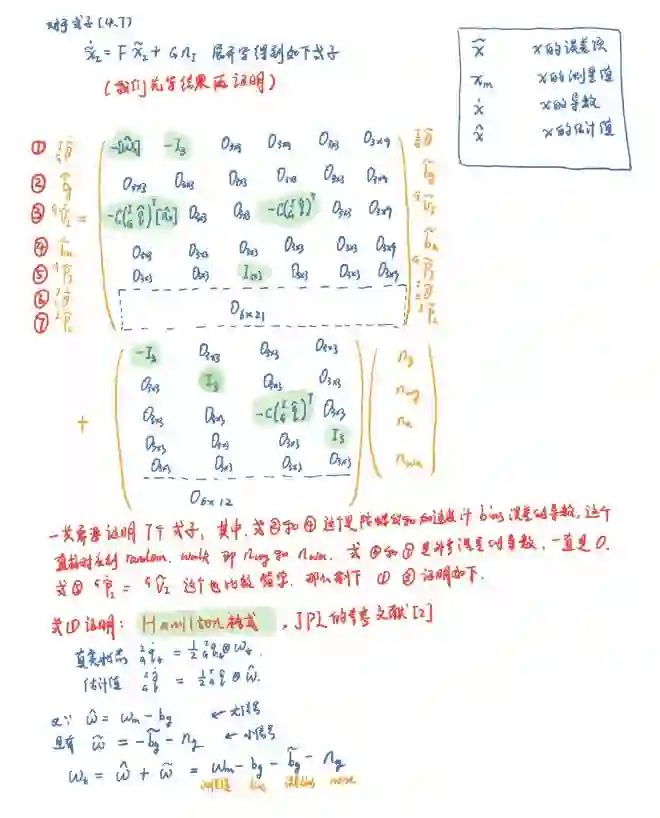 对于式子(4.7)
$\dot{\tilde{x}}_I = F\tilde{x}_I + Gn_I$ 展开写得到如下式子
(我们先写结果再证明)
$\tilde{x}$ x的误差项
$x_m$ x的测量值
$\dot{x}$ x的导数
$\hat{x}$ x的估计值
① $-[\hat{\omega}_\times]$ $-I_3$ $0_{3×3}$ $0_{3×3}$ $0_{3×3}$ $0_{3×3}$ $0_{3×9}$
② $0_{3×3}$ $0_{3×3}$ $0_{3×3}$ $0_{3×3}$ $0_{3×3}$ $0_{3×9}$
③ = $-C({}^I_G\hat{q})^T[\hat{a}_\times]$ $0_{3×3}$ $0_{3×3}$ $-C({}^I_G\hat{q})^T$ $0_{3×3}$ $0_{3×9}$
④ $0_{3×3}$ $0_{3×3}$ $0_{3×3}$ $0_{3×3}$ $0_{3×3}$ $0_{3×9}$
⑤ $0_{3×3}$ $0_{3×3}$ $I_{3×3}$ $0_{3×3}$ $0_{3×3}$ $0_{3×9}$
⑥
⑦ $0_{6×21}$
$-I_3$ $0_{3×3}$ $0_{3×3}$ $0_{3×3}$
$0_{3×3}$ $I_3$ $0_{3×3}$ $0_{3×3}$ $n_g$
+ $0_{3×3}$ $0_{3×3}$ $-C({}^I_G\hat{q})^T$ $0_{3×3}$ $n_{wg}$
$0_{3×3}$ $0_{3×3}$ $0_{3×3}$ $I_3$ $n_a$
$0_{3×3}$ $0_{3×3}$ $0_{3×3}$ $0_{3×3}$ $n_{wa}$
$0_{6×12}$
一共需要证明7个式子, 其中, 式②和④ 这个是陀螺仪和加速度计 bias 误差的导数, 这个
直接对应到 random walk 即 $n_{wg}$ 和 $n_{wa}$. 式⑥和⑦是外参误差的导数, 一直是0.
式⑤ ${}^G\dot{\tilde{p}}_I = {}^G\tilde{v}_I$ 这个也比较简单. 那么剩下 ① ③ 证明如下.
式①证明: Hamilton 格式, JPL的参考文献[2]
真实状态 ${}^I_G\dot{q}_t = \frac{1}{2}{}^I_Gq_t \otimes \omega_t$.
估计值 ${}^I_G\dot{\hat{q}} = \frac{1}{2}{}^I_G\hat{q} \otimes \hat{\omega}$.
又∵ $\hat{\omega} = \omega_m - b_g$ ← 大信号
且有 $\tilde{\omega} = -\tilde{b}_g - n_g$ ← 小信号
$\omega_t = \hat{\omega} + \tilde{\omega} = \omega_m - b_g - \tilde{b}_g - n_g$
测量值 bias 误差bias noise